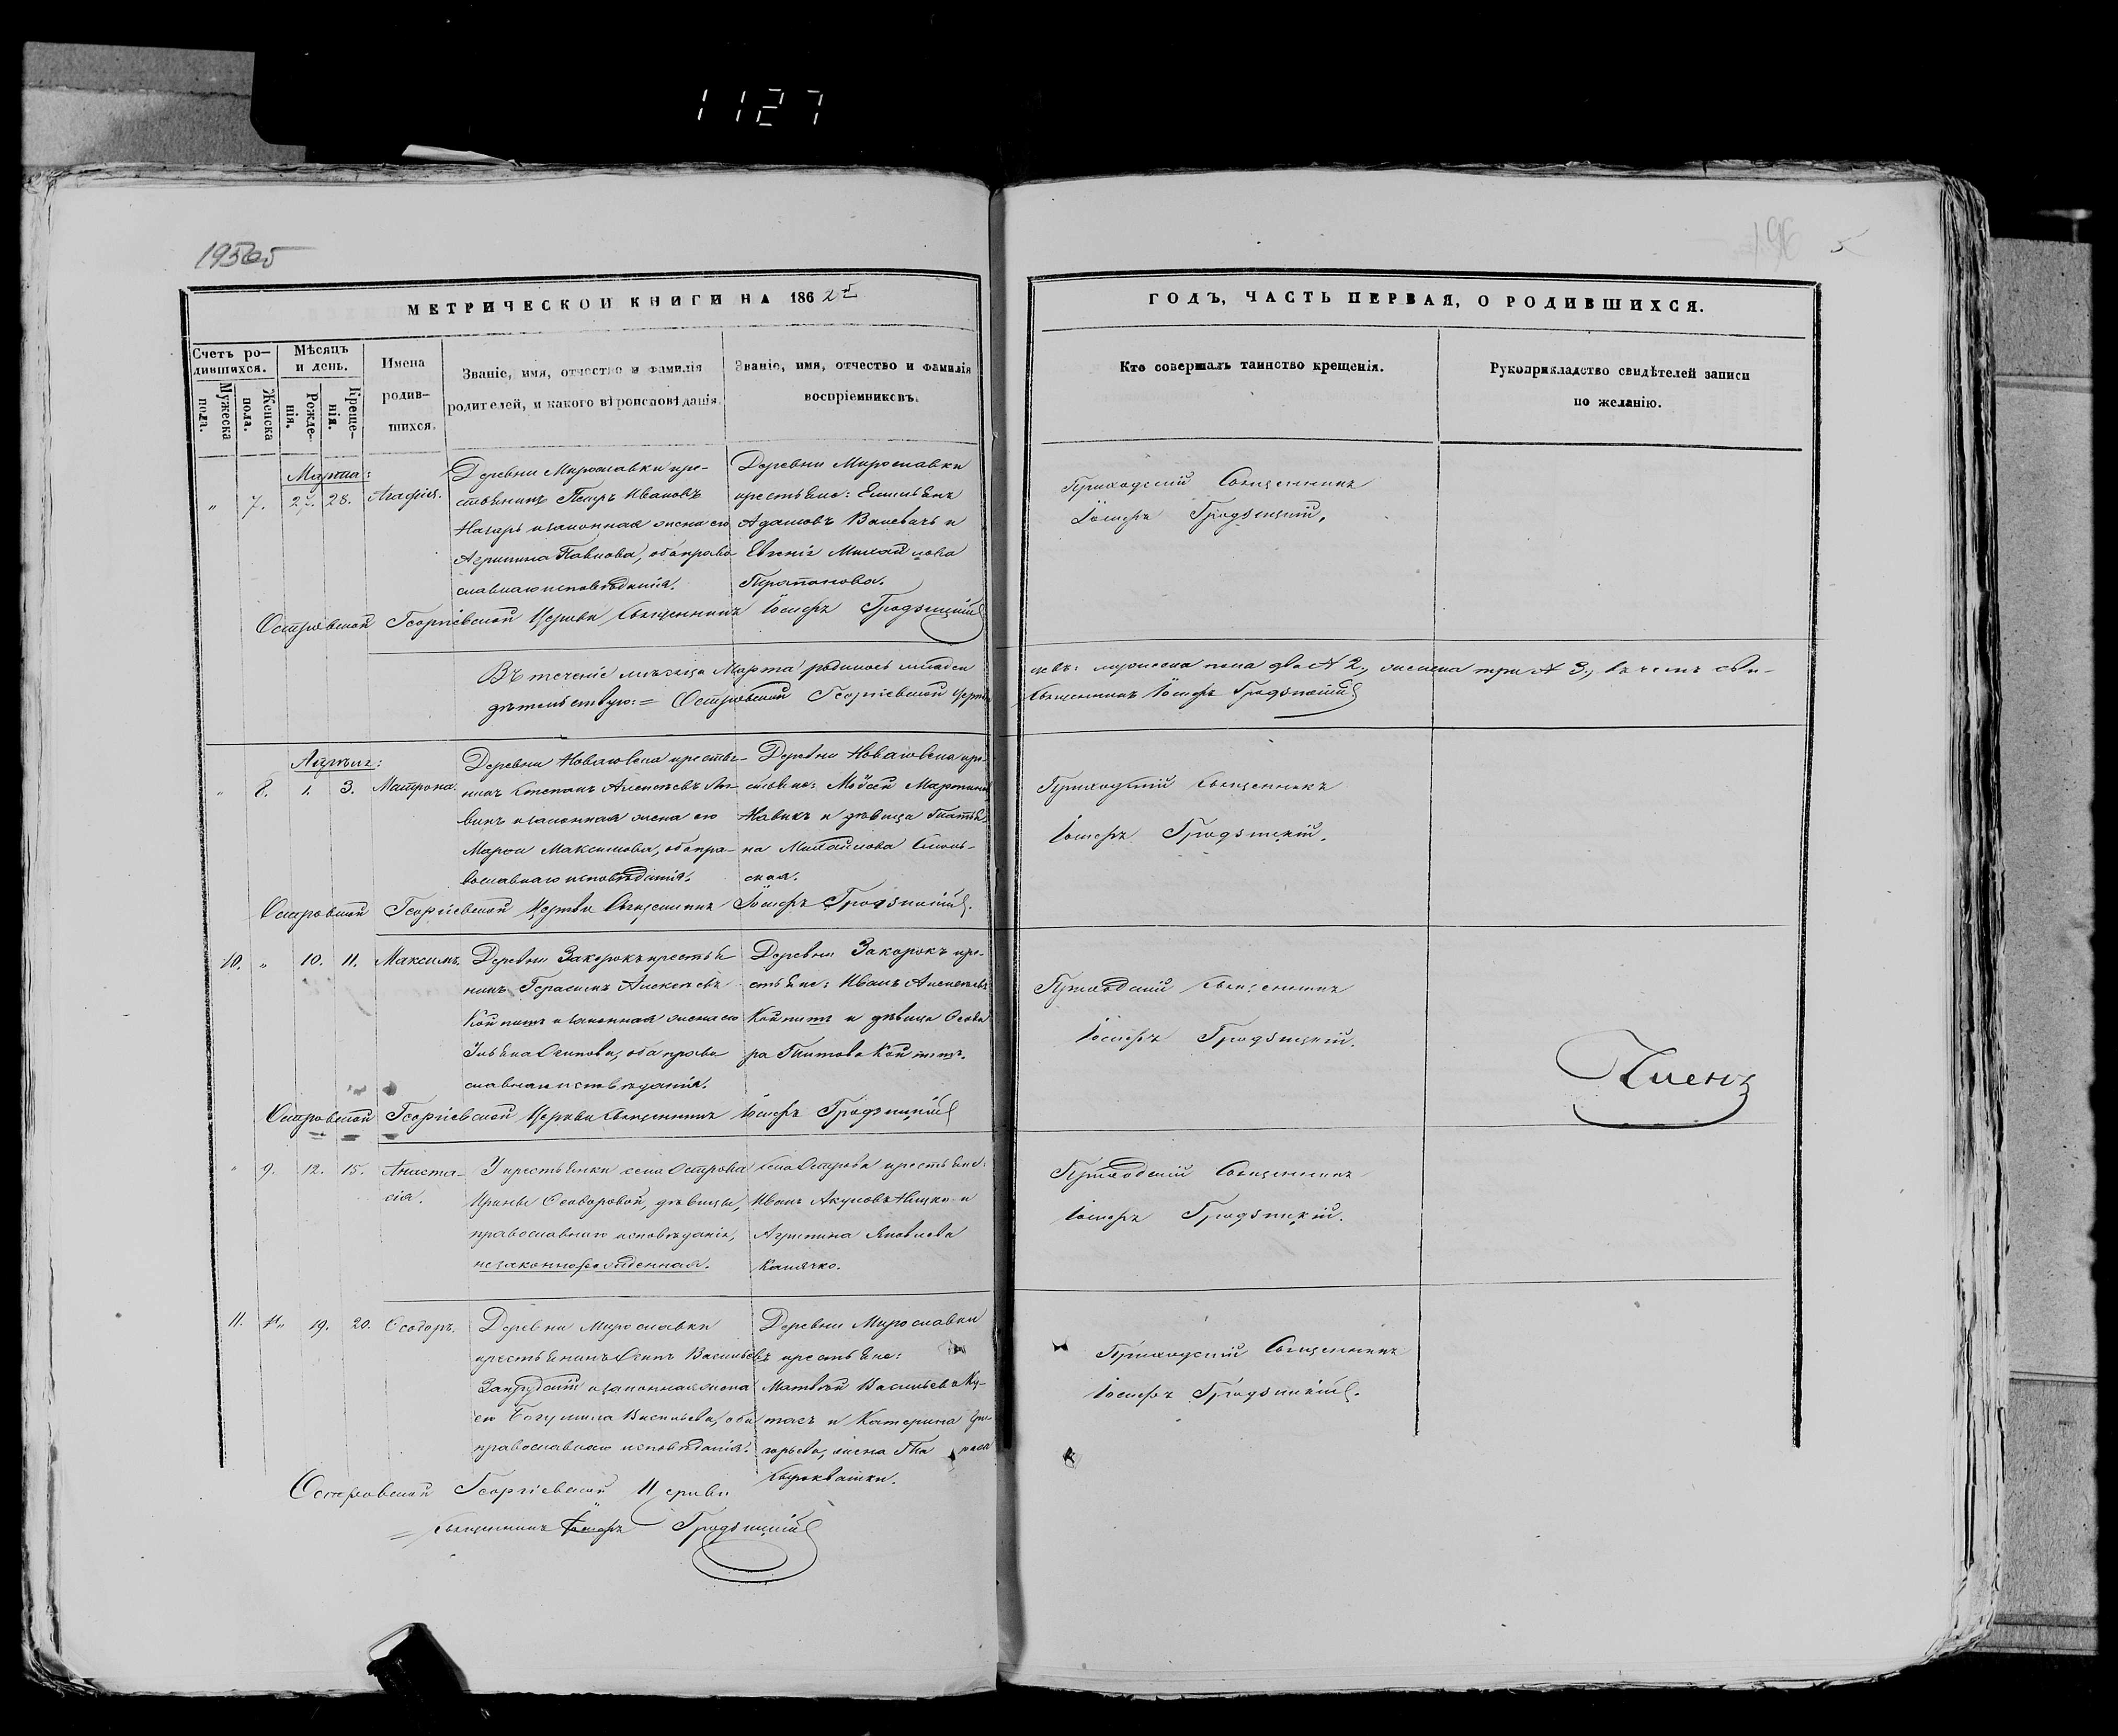 1127
195
5
МЕТРИЧЕСКОЙ КНИГИ НА 1862й
ГОДЪ, ЧАСТЬ ПЕРВАЯ, О РОДИВШИХСЯ.
Счетъ ро-
дившихся.
Мужеска
пола.
Женска
пола.
Мѣсяцъ
и день.
Рожде-
нія.
Креще-
нія.
Имена
родив-
шихся.
Званіе, имя, отчество и фамилія
родителей, и какого вѣроисповѣданія.
Званіе, имя, отчество и фамилія
воспріемниковъ.
Кто совершалъ таинство крещенія.
Рукоприкладство свидѣтелей записи
по желанію.
Марта:
" 7. 27. 28. Агафія.
Деревни Мирославки кре-
стьянинъ Петръ Ивановъ
законная жена его
Агрипина Павлова, оба право
славнаго исповѣданія.
Деревни Мирославки
крестьяне: Емильянъ
Адамовъ и
Евгенія Михайлова
Приходскій Священникъ
Іосифъ Гродзицкій.
Островской Георгіевской Церкви Священникъ Іосифъ Гродзицкій
Въ теченіе мѣсяца Марта родилось младен
цевъ: мужеска пола два № 2., женска три № 3., въ чемъ сви-
дѣтельствую: = Островской Георгіевской Церкви
Священникъ Іосифъ Гродзицкій
Апрѣль:
" 8. 1. 3. Матрона.
Деревни крестья-
нинъ Степанъ Алексѣевъ
законная жена его
Марья Максимова, оба пра-
вославнаго исповѣданія.
Деревни кре-
стьяне: Мойсей
Новикъ и дѣвица
Михайлова
ская.
Приходскій Священникъ
Іосифъ Гродзицкій.
Островской Георгіевской Церкви Священникъ Іосифъ Гродзицкій.
10. " 10. 11. Максимъ.
Деревни Закорокъ крестья
нинъ Герасимъ Алексѣевъ
законная жена его
Ульяна Осипова, оба право
славнаго исповѣданія.
Деревни Закорокъ кре-
стьяне: Иванъ Алексѣевъ
и дѣвица Феодо
ра Титова
Приходскій Священникъ
Іосифъ Гродзицкій.
Членъ
Островской Георгіевской Церкви Священникъ Іосифъ Гродзицкій
" 9. 12. 15. Анаста-
сія.
У крестьянки села Острова
Ирины Феодоровой, дѣвицы,
православнаго исповѣданія,
незаконнорожденная.
Села Острова крестьяне:
Иванъ и
Агрипина Яковлева
Приходскій Священникъ
Іосифъ Гродзицкій.
11. " 19. 20. Феодоръ.
Деревни Мирославки
крестьянинъ Осипъ Васильевъ
законная жена
его Богумила Васильева, оба
православнаго исповѣданія.
Деревни Мирославки
крестьяне:
Матвѣй Васильевъ Ку-
и Катерина Гри-
горьева, жена
Сыроквашки.
Приходскій Священникъ
Іосифъ Гродзицкій.
Островской Георгіевской Церкви
= Священникъ Іосифъ Гродзицкій